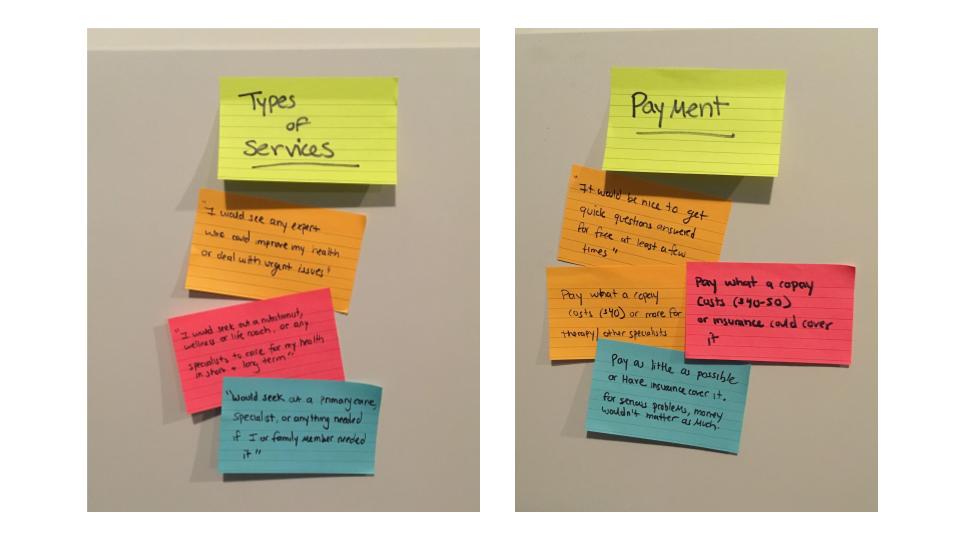 Types
of
Services
"I would see any expert
who could improve my health
or deal with urgent issues"
"I would seek out a nutritionist,
wellness or life coach, or any
specialists to care for my health
in short + long term"
"Would seek out a primary care,
specialist, or anything needed
if I or family member needed
it"
Payment
"It would be nice to get
quick questions answered
for free at least a few
times"
Pay what a copay
costs ($40) or more for
therapy/other specialists
Pay what a copay
costs ($40-50)
or insurance could cover
it
Pay as little as possible
or Have insurance cover it.
For serious problems, money
wouldn't matter as much.